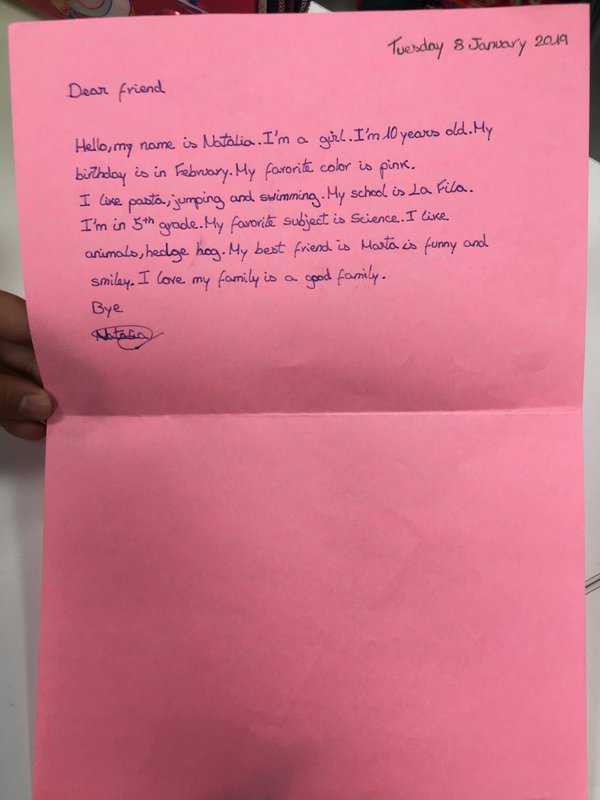 Tuesday 8 January 2019
Dear friend
Hello, my name is Natalia. I'm a girl. I'm 10 years old. My
birthday is in February. My favorite color is pink.
I like pasta, jumping and swimming. My school is La Fila.
I'm in 5th grade. My favorite subject is Science. I like
animals, hedge hog. My best friend is Marta is funny and
smiley. I love my family is a good family.
Bye
Natalia